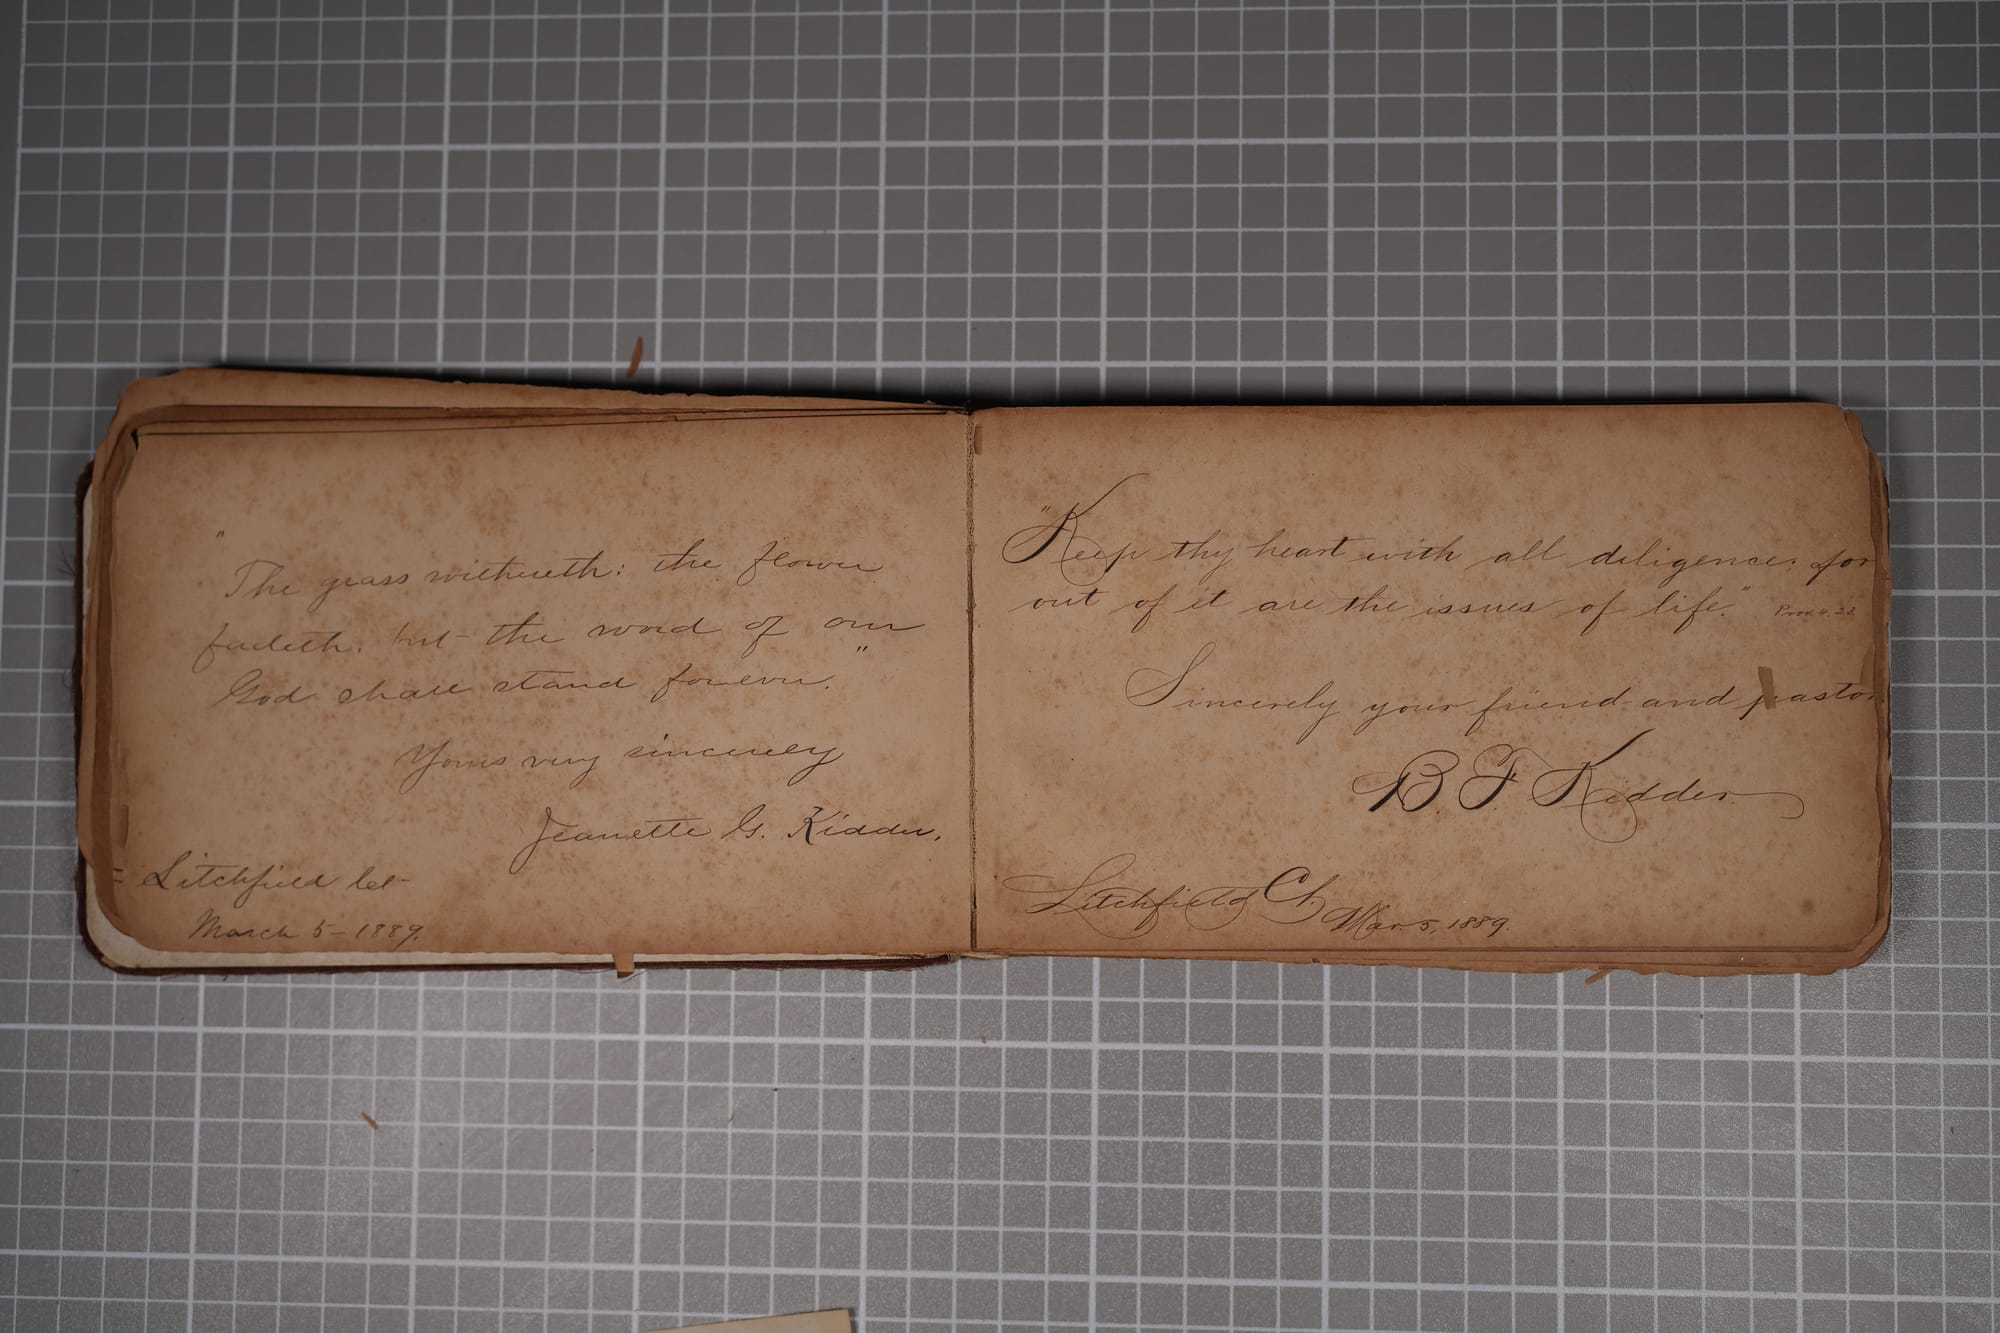 "The grass withereth: the flower
fadeth. but the word of our
God shall stand forever."
Yours very sincerely
Jeanette G. Kidder.
Litchfield Ct
March 5 - 1889.
"Keep thy heart with all diligence; for
out of it are the issues of life." Prov. 4.23.
Sincerely your friend and pastor
B. F. Kidder
Litchfield Ct.
Mar. 5, 1889.